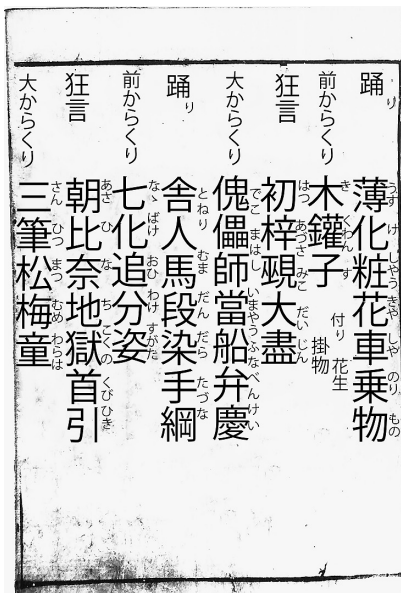 踊り 薄化粧花車乗物 うすけしやうきやしやのりもの
前からくり 木鑵子 きくわんす 付り 花生 掛物
狂言 初梓覡大盡 はつあづさみこだいじん
大からくり 傀儡師當船弁慶 でこまはしいまやうふなべんけい
踊り 舎人馬段染手綱 とねりむまだんだらたづな
前からくり 七化追分姿 なゝばけおひわけすがた
狂言 朝比奈地獄首引 あさひなちこくのくびひき
大からくり 三筆松梅童 さんひつまつむめわらは